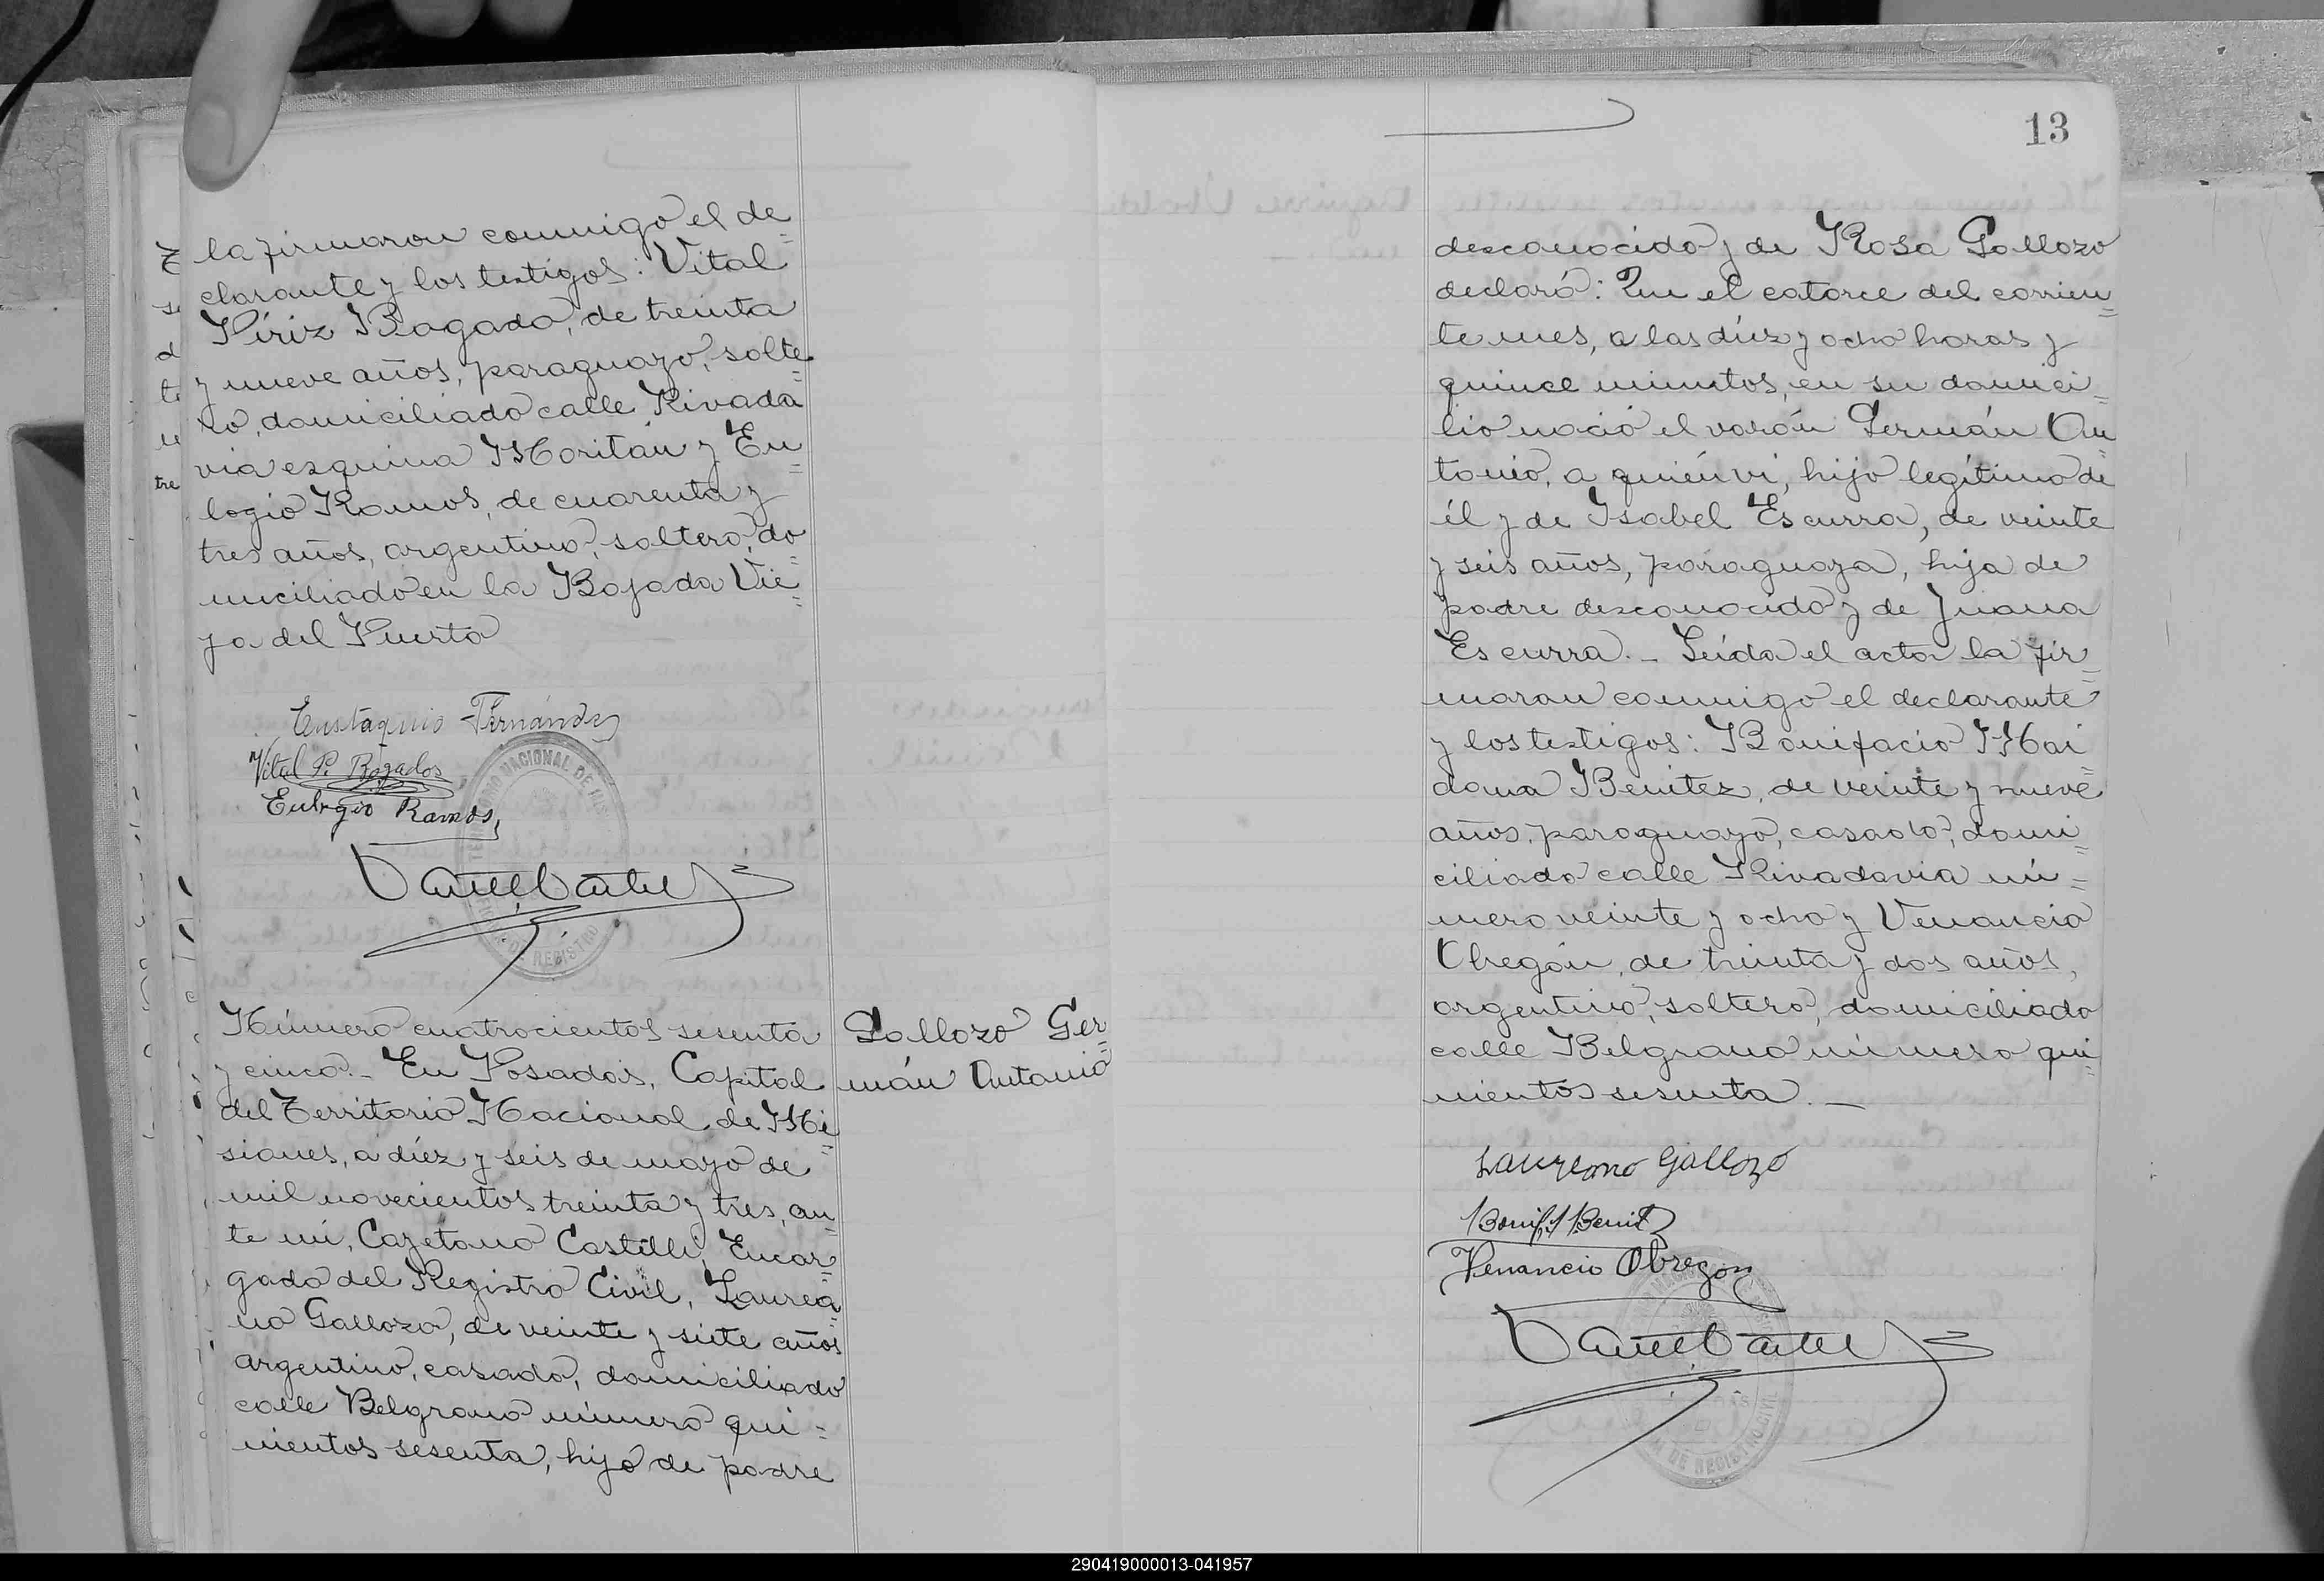 la firmaron conmigo el de=
clarante y los testigos: Vital
Píriz Bogado, de treinta
y nueve años, paraguayo, solte=
ro, domiciliado calle Rivada
via esquina Moritán y Eu=
logio Ramos, de cuarenta y
tres años, argentino, soltero, do=
miciliado en la Bajada Vie=
ja del Puerto
Eustaquio Fernández
Vital P. Bogados
Eulogio Ramos
Número cuatrocientos sesenta
y cinco.- En Posadas, Capital
del Territorio Nacional de Mi=
siones, a diéz y seis de mayo de
mil novecientos treinta y tres, an=
te mí, Cayetano Castelli, Encar=
gado del Registro Civil, Laurea=
no Gallozo, de veinte y siete años
argentino, casado, domiciliado
calle Belgrano número qui=
nientos sesenta, hijo de padre
Gallozo Ger=
mán Antonio
13
desconocido y de Rosa Gallozo
declaró: Que el catorce del corrien=
te mes, a las diéz y ocho horas y
quince minutos, en su domici=
lio nació el varón Germán An=
tonio, a quién ví, hijo legítimo de
él y de Isabel Escurra, de veinte
y seis años, paraguaya, hija de
padre desconocido y de Juana
Escurra.- Leída el acta la fir=
maron conmigo el declarante
y los testigos: Bonifacio Mai=
dana Benitez, de veinte y nueve
años, paraguayo, casado, domi=
ciliado calle Rivadavia nú=
mero veinte y ocho y Venancio
Obregón, de treinta y dos años,
argentino, soltero, domiciliado
calle Belgrano número qui=
nientos sesenta.-
Laureano Gallozo
Bonif M Benitz
Venancio Obregon
DE REGISTRO CIVIL
290419000013-041957